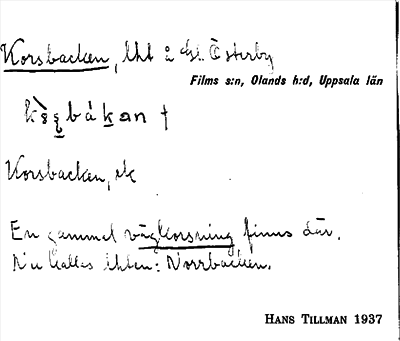 Korsbacken, lht å Gl. Österby
Films s:n, Olands h:d, Uppsala län
Korsbacken,
En gammal vägkorsning finns där.
Nu kallas lhten: Norrbacken.
HANS TILLMAN 1937